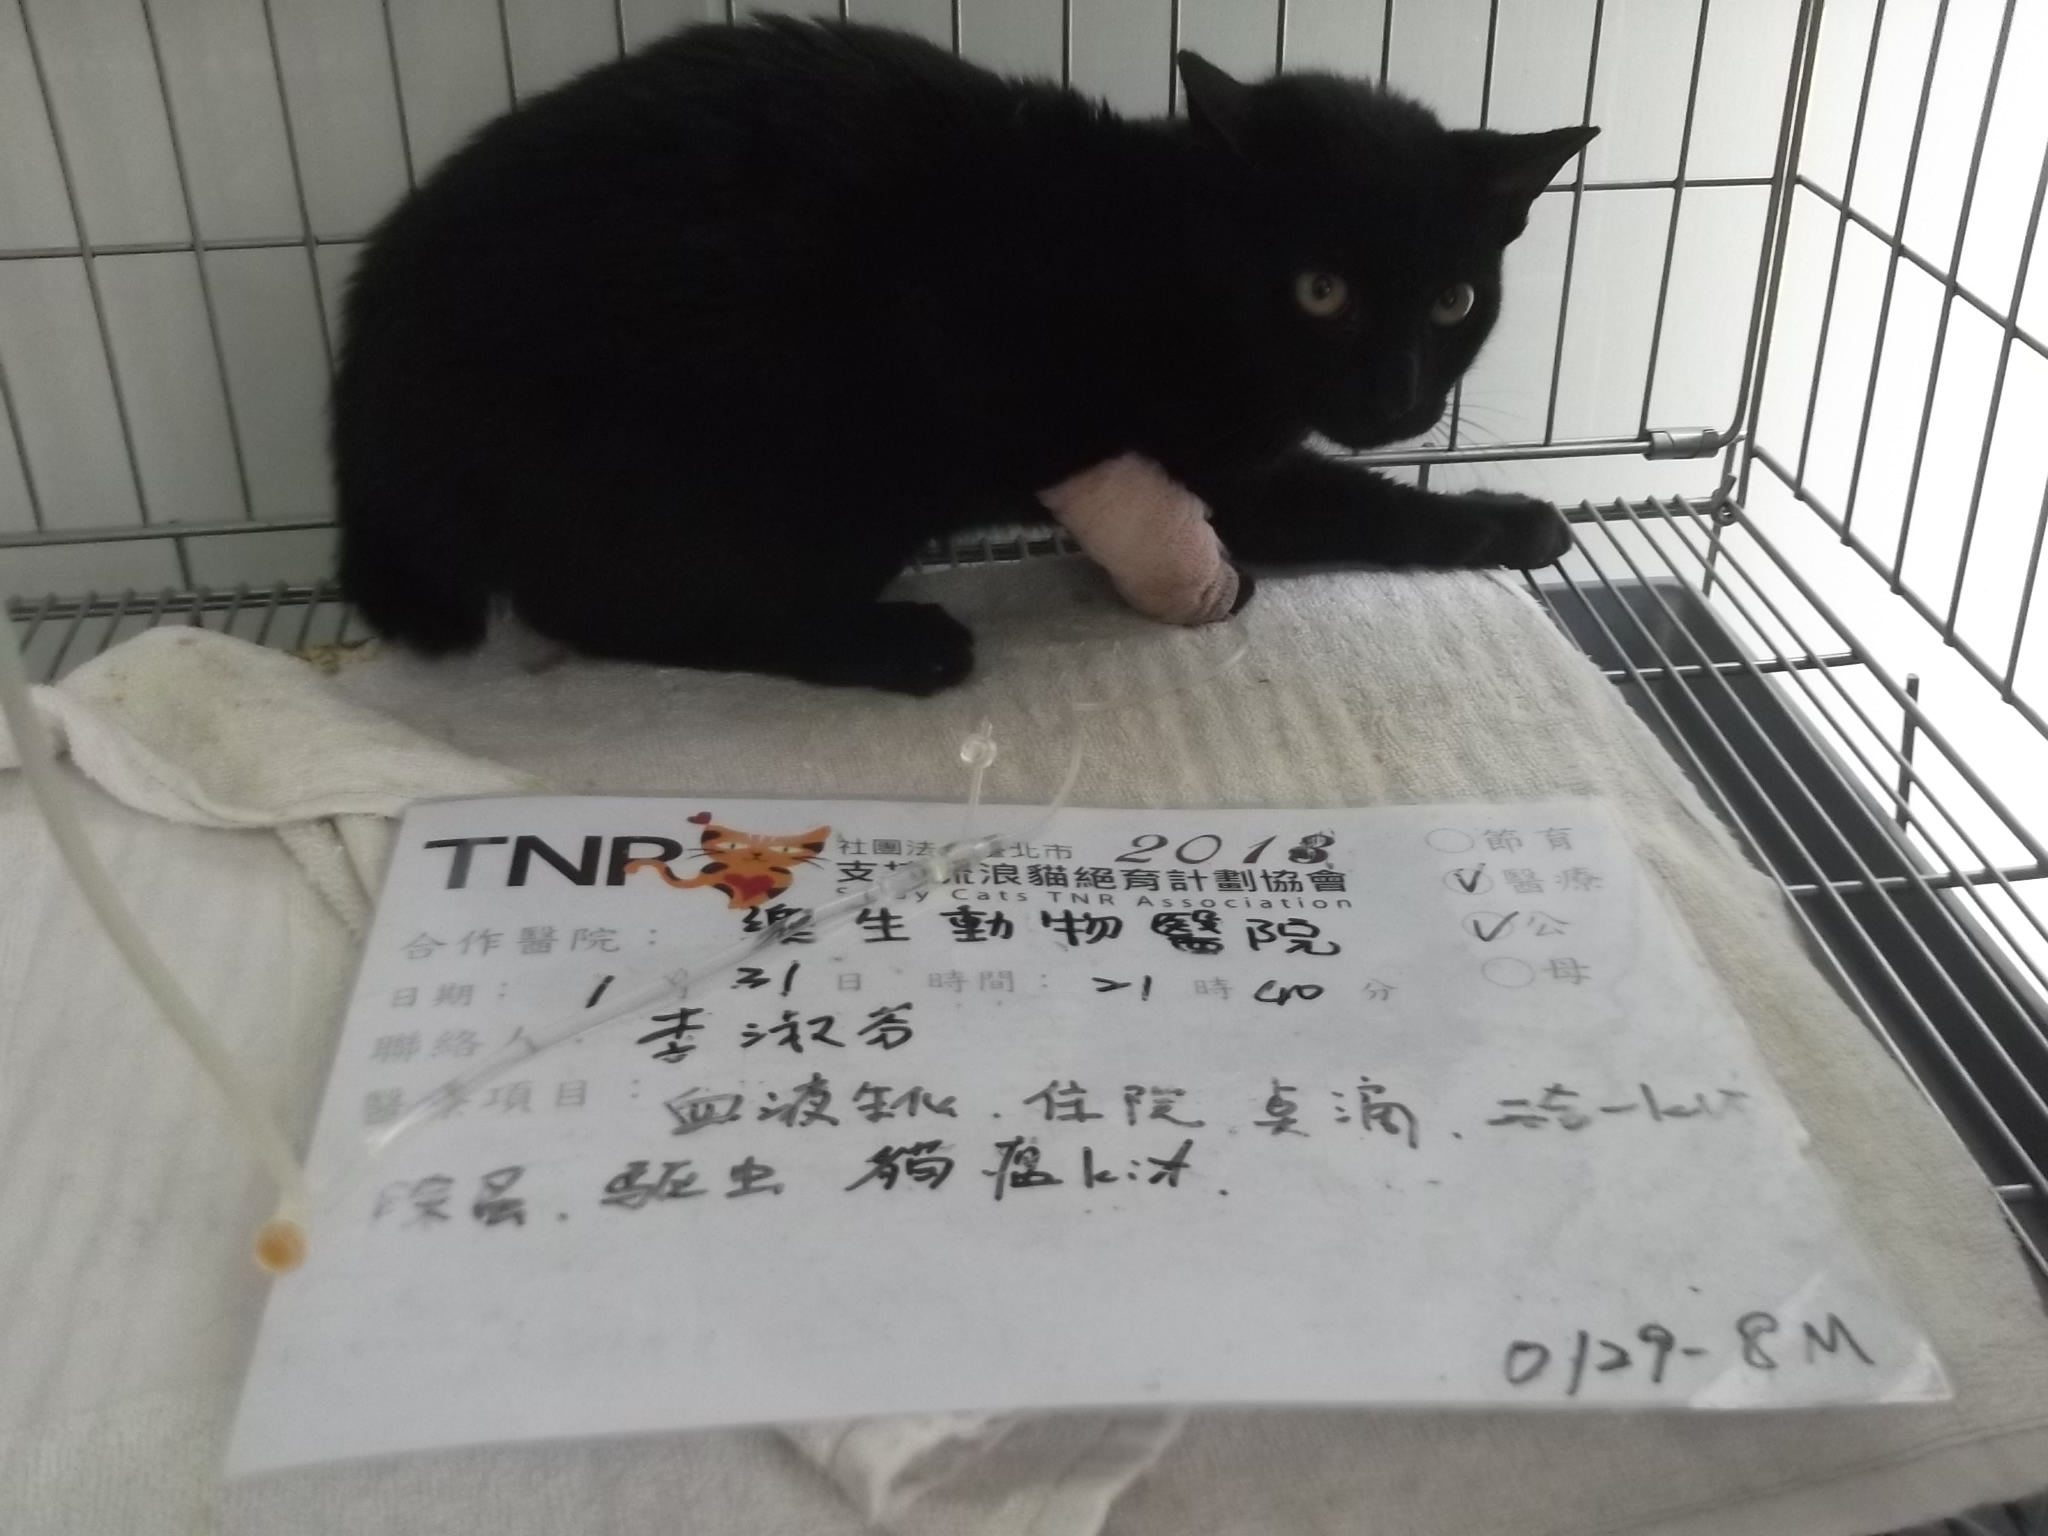 TNR 社團法人臺北市 2018
支持流浪貓絕育計劃協會
Stray Cats TNR Association
節育
醫療
公
母
合作醫院： 樂生動物醫院
日期： 1月31日 時間： 21時40分
聯絡人： 李淑芬
醫療項目： 血液生化．住院 點滴．二合一kit
除蚤．驅虫 貓瘟kit．
0129-8M